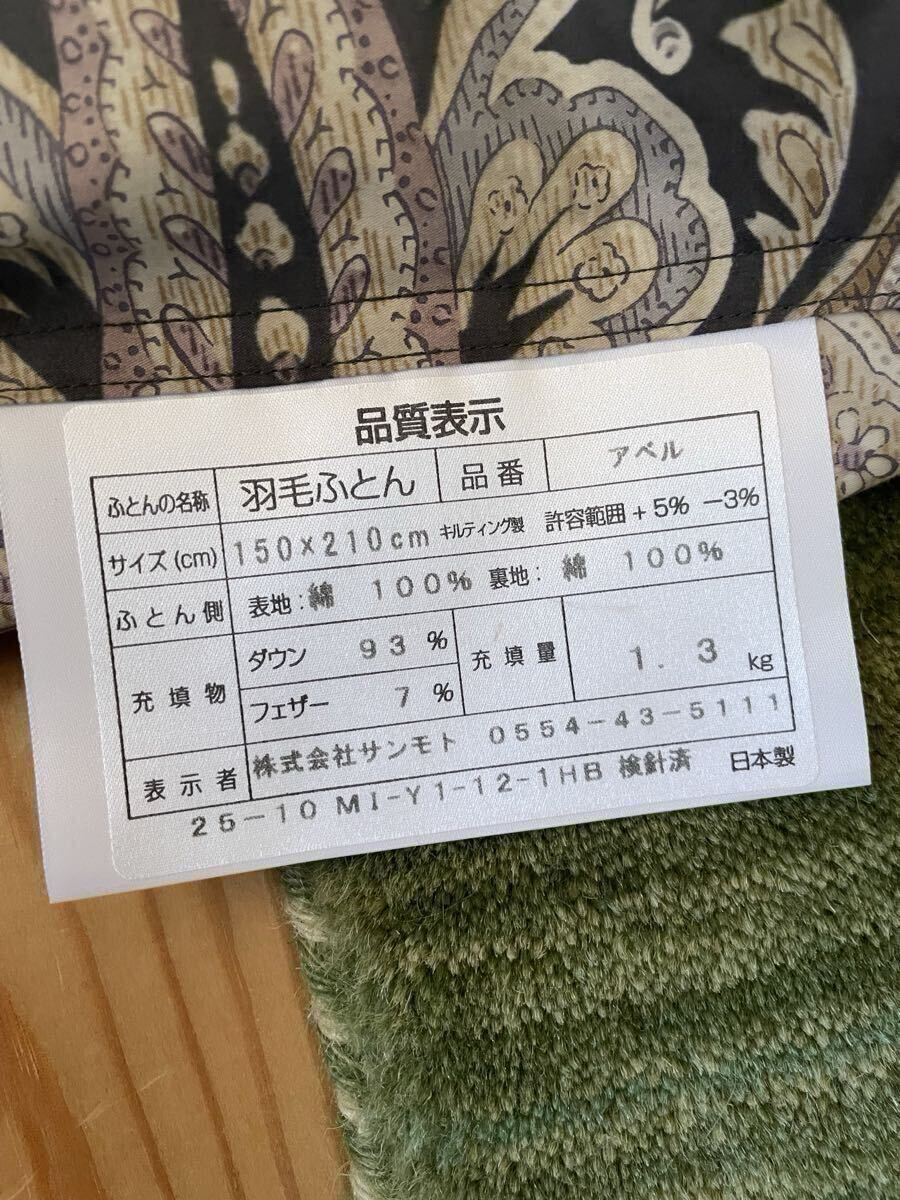 品質表示
ふとんの名称 羽毛ふとん 品番 アベル
サイズ(cm) 150×210cm キルティング製 許容範囲 +5% −3%
ふとん側 表地:綿 100% 裏地:綿 100%
充填物 ダウン 93% 充填量 1.3kg
フェザー 7%
表示者 株式会社サンモト 0554-43-5111
25-10 MI-Y1-12-1HB 検針済 日本製